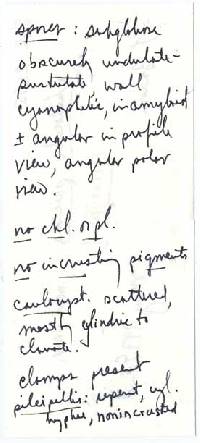 spores : subglobose
obscurely undulate-
pustulate wall
cyanophilic, inamyloid
± angular in profile
view, angular polar
view.
no chl. or pl.
no incrusting pigments
caulocyst. scattered,
mostly cylindric to
clavate.
clamps present
pileipellis: repent, cyl.
hyphae, nonincrusted